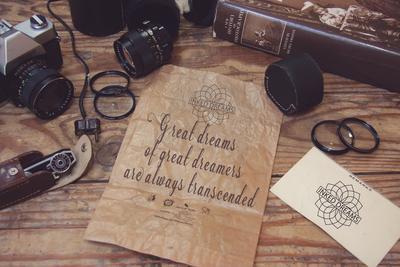 INKED DREAMS
Great dreams
of great dreamers
are always transcended
INKED DREAMS